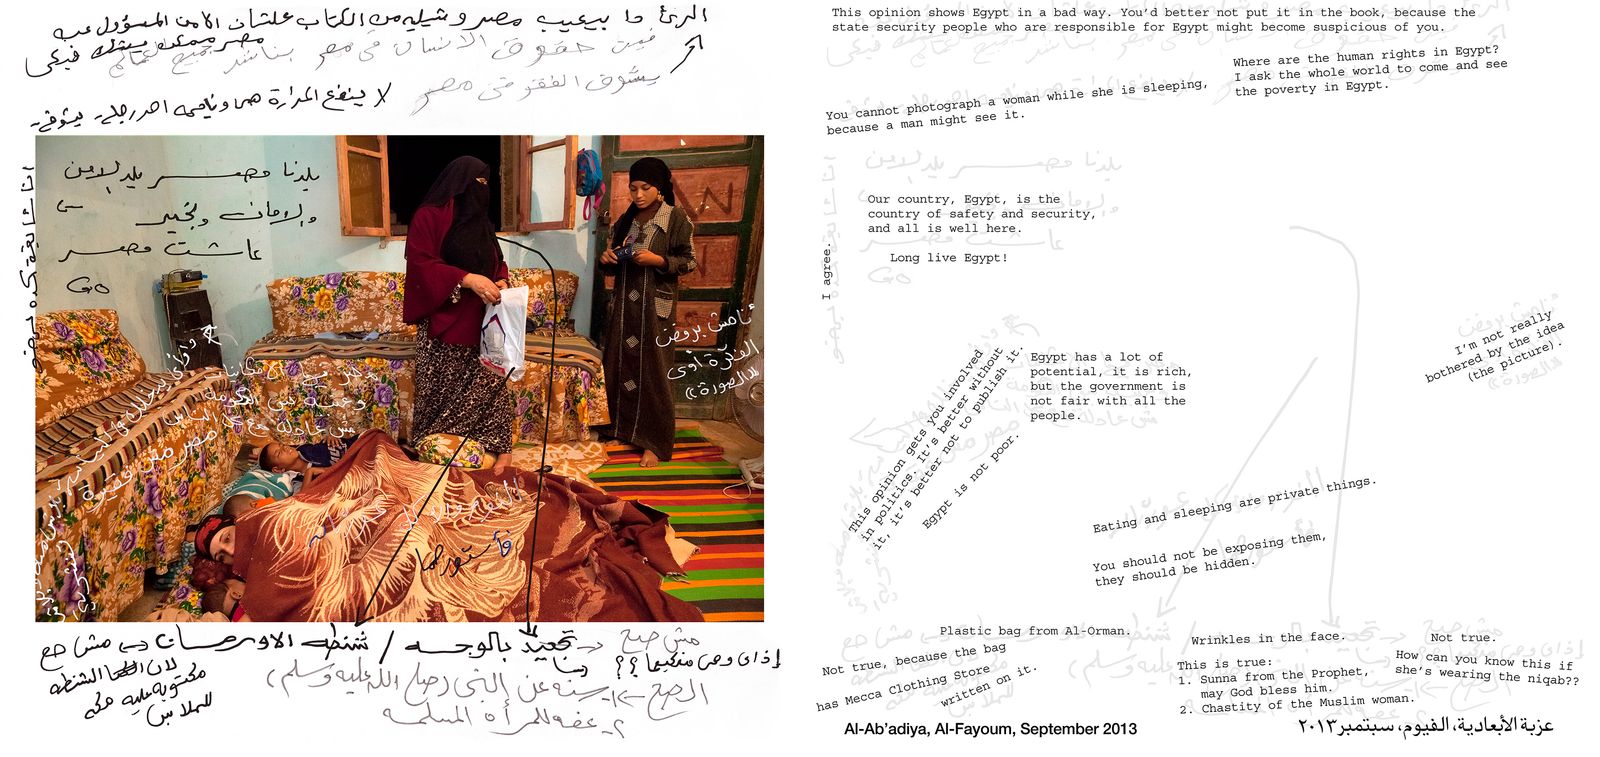 الرئ ما بيعيب مصر وشيله من الكتاب علشان الامن المسؤول عن
مصر ممكن يشك فيكى
فين حقوق الانسان فى مصر بناشد جميع العالم
يشوف الفقر فى مصر
لا ينفع المرأة هما ونايمه احد رجله يشوفه
بلدنا مصر بلد الامن
والامان وبخير
عاشت مصر
مش بروفض
الفكرة اوى
(الصورة)
مصر مش فقيرة
النوم والاكل
فأستورهما
تجعيد بالوجه / شنطه الاورمان
مش صح
لان الشنطه
مكتوبه عليه مكه
للملابس
مش صحيح
إذاى وهى منقبها ؟؟
الصح
١- سنه عن النبى (صلى الله عليه وسلم)
٢- عفه للمرأة المسلمه
This opinion shows Egypt in a bad way. You'd better not put it in the book, because the
state security people who are responsible for Egypt might become suspicious of you.
Where are the human rights in Egypt?
I ask the whole world to come and see
the poverty in Egypt.
You cannot photograph a woman while she is sleeping,
because a man might see it.
I agree.
Our country, Egypt, is the
country of safety and security,
and all is well here.
Long live Egypt!
I'm not really
bothered by the idea
(the picture).
This opinion gets you involved
in politics. It's better without
it, it's better not to publish it.
Egypt is not poor.
Egypt has a lot of
potential, it is rich,
but the government is
not fair with all the
people.
Eating and sleeping are private things.
You should not be exposing them,
they should be hidden.
Plastic bag from Al-Orman.
Not true, because the bag
has Mecca Clothing Store
written on it.
Wrinkles in the face.
Not true.
How can you know this if
she's wearing the niqab??
This is true:
1. Sunna from the Prophet,
may God bless him.
2. Chastity of the Muslim woman.
Al-Ab'adiya, Al-Fayoum, September 2013
عزبة الأبعادية، الفيوم، سبتمبر ٢٠١٣